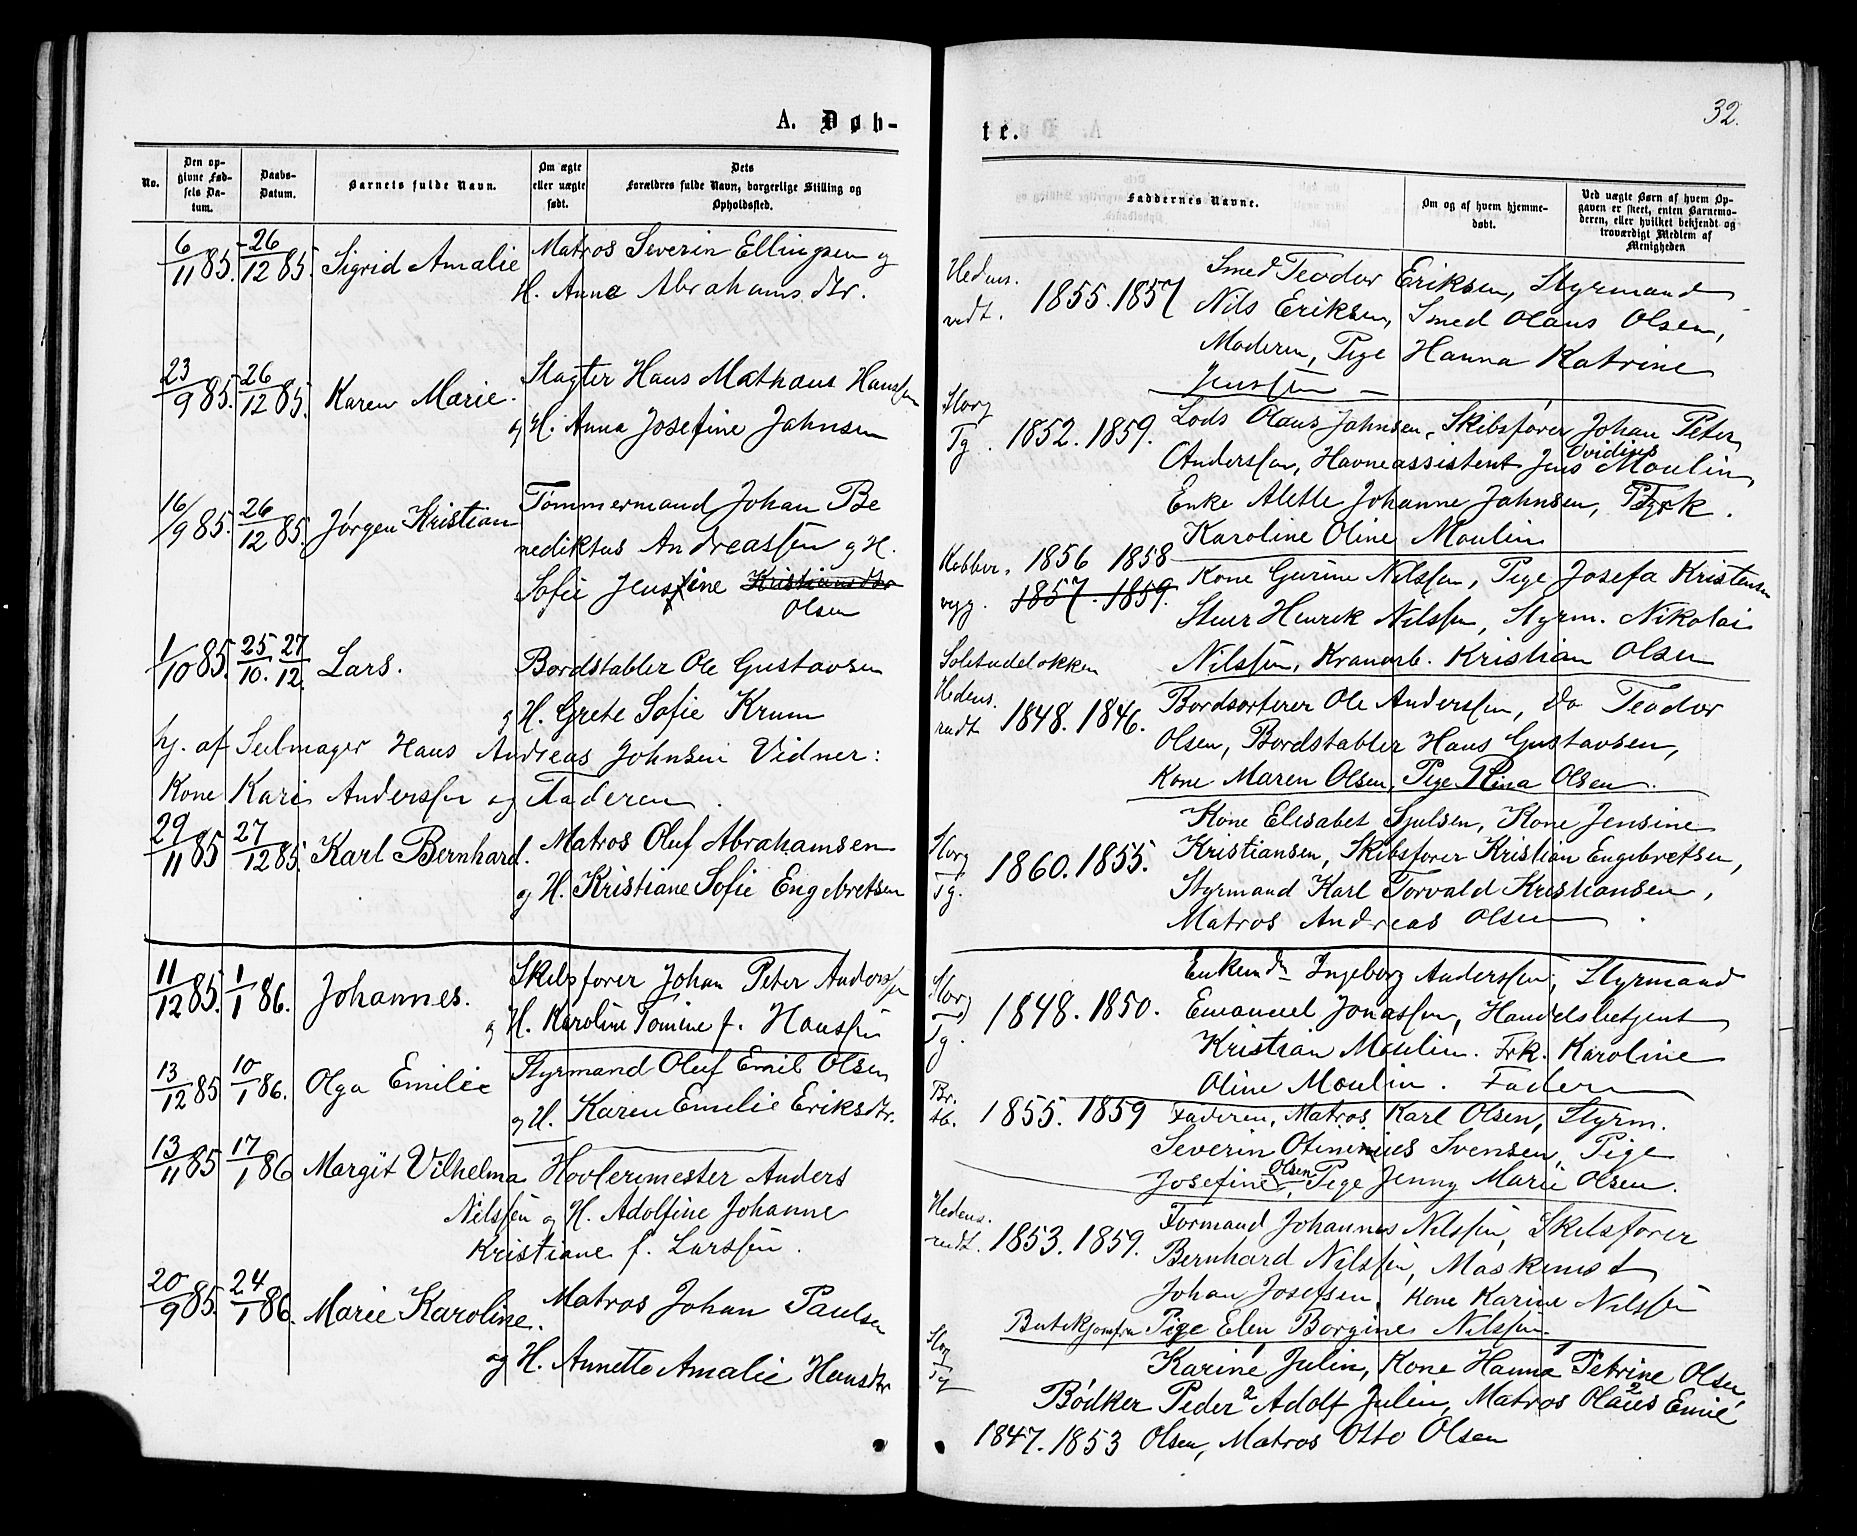 A. Døb-
No.
Den op-
givne Fød-
sels Da-
tum.
Daabs-
Datum.
Barnets fulde Navn.
Om ægte
eller uægte
født.
Dets
Forældres fulde Navn, borgerlige Stilling og
Opholdssted.
6/11 85. 26/12 85. Sigrid Amalie Matros Severin Ellingsen og
H. Anne Abrahams dtr.
23/9 85. 26/12 85. Karen Marie. Slagter Hans Mathaus Hanssen
og H. Anna Josefine Jahnsen
16/9 85. 26/12 85. Jørgen Kristian Tømmermand Johan Be
nediktus Andreassen og H.
Sofie Jensine Kristiansdtr
Olsen
1/10 85. 25/10. 27/12. Lars. Bordstabler Ole Gustavsen
og H. Grete Sofie Krum
hj. af Seilmager Hans Andreas Johnsen Vidner:
Kone Kari Anderssen og Faderen.
29/11 85 27/12 85. Karl Bernhard. Matros Oluf Abrahamsen
og H. Kristiane Sofie Engebretsen
11/12 85. 1/1 86. Johannes. Skibsfører Johan Peter Anderssen
og H. Karoline Tomine f. Hanssen
13/12 85 10/1 86. Olga Emilie Styrmand Oluf Emil Olsen
og H. Karen Emelie Eriksdtr.
13/11 85 17/1 86 Margit Vilhelma Høvlerimester Anders
Nilssen og H. Adolfine Johanne
Kristiane f. Larssen.
20/9 85. 24/1 86. Marie Karoline. Matros Johan Paulsen
og H. Annette Amalie Hansdtr
te.
32.
Faddernes Navne.
Om og af hvem hjemme-
døbt.
Ved uægte Børn af hvem Op-
gaven er skeet, enten Barnemo-
deren, eller hvilket bekjendt og
troværdigt Medlem af
Menigheden
Hedens.
rudt. 1855. 1857 Smed Teodor Eriksen, Styrmand
Nils Eriksen, Smed Olaus Olsen,
Moderen, Pige Hanna Katrine
Jenssen
Storg
Tg. 1852. 1859. Lods Olaus Jahnsen, Skibsfører Johan Peter
Anderssen, Havneassistent Jens Ovidius Moulin,
Enke Alette Johanne Jahnsen, Frk.
Karoline Oline Moulin
Kobber.
vyg. 1856 1858
1857. 1859. Kone Gurine Nilssen, Pige Josefa Kristensen
Stuer Henrik Nilssen, Styrm. Nikolai
Nilssen, Kranarb. Kristian Olsen
Solstadeløkken
Hedens.
rudt 1848. 1846. Bordsorterer Ole Anderssen, do Teodor
Olsen, Bordstabler Hans Gustavsen,
Kone Maren Olsen, Pige Stina Olsen.
Storg
Tg. 1860. 1855. Kone Elisabet Sjulsen, Kone Jensine
Kristiansen, Skibsfører Kristian Engebretsen,
Styrmand Karl Torvald Kristiansen,
Matros Andreas Olsen
Storg
Tg. 1848. 1850. Enkemd. Ingeborg Anderssen, Styrmand
Emanuel Jonassen, Handelsbetjent
Kristian Moulin. Frk. Karoline
Oline Moulin. Faderen
Br.
tb. 1855. 1859 Faderen, Matros Karl Olsen, Styrm.
Severin Otinius Svensen, Pige
Josefine Olsen, Pige Jenny Marie Olsen.
Hedens.
rudt. 1853. 1859. Formand Johannes Nilssen, Skibsfører
Bernhard Nilssen, Maskinist
Johan Josefsen, Kone Karine Nilssen
Pige Elen Borgine Nilssen.
Storg
Tg Butikjomfru Karine Julin, Kone Hanna Petrine Olsen,
Bødker Peder Adolf Julin, Matros Olaus Emil
1847. 1853 Olsen, Matros Otto Olsen